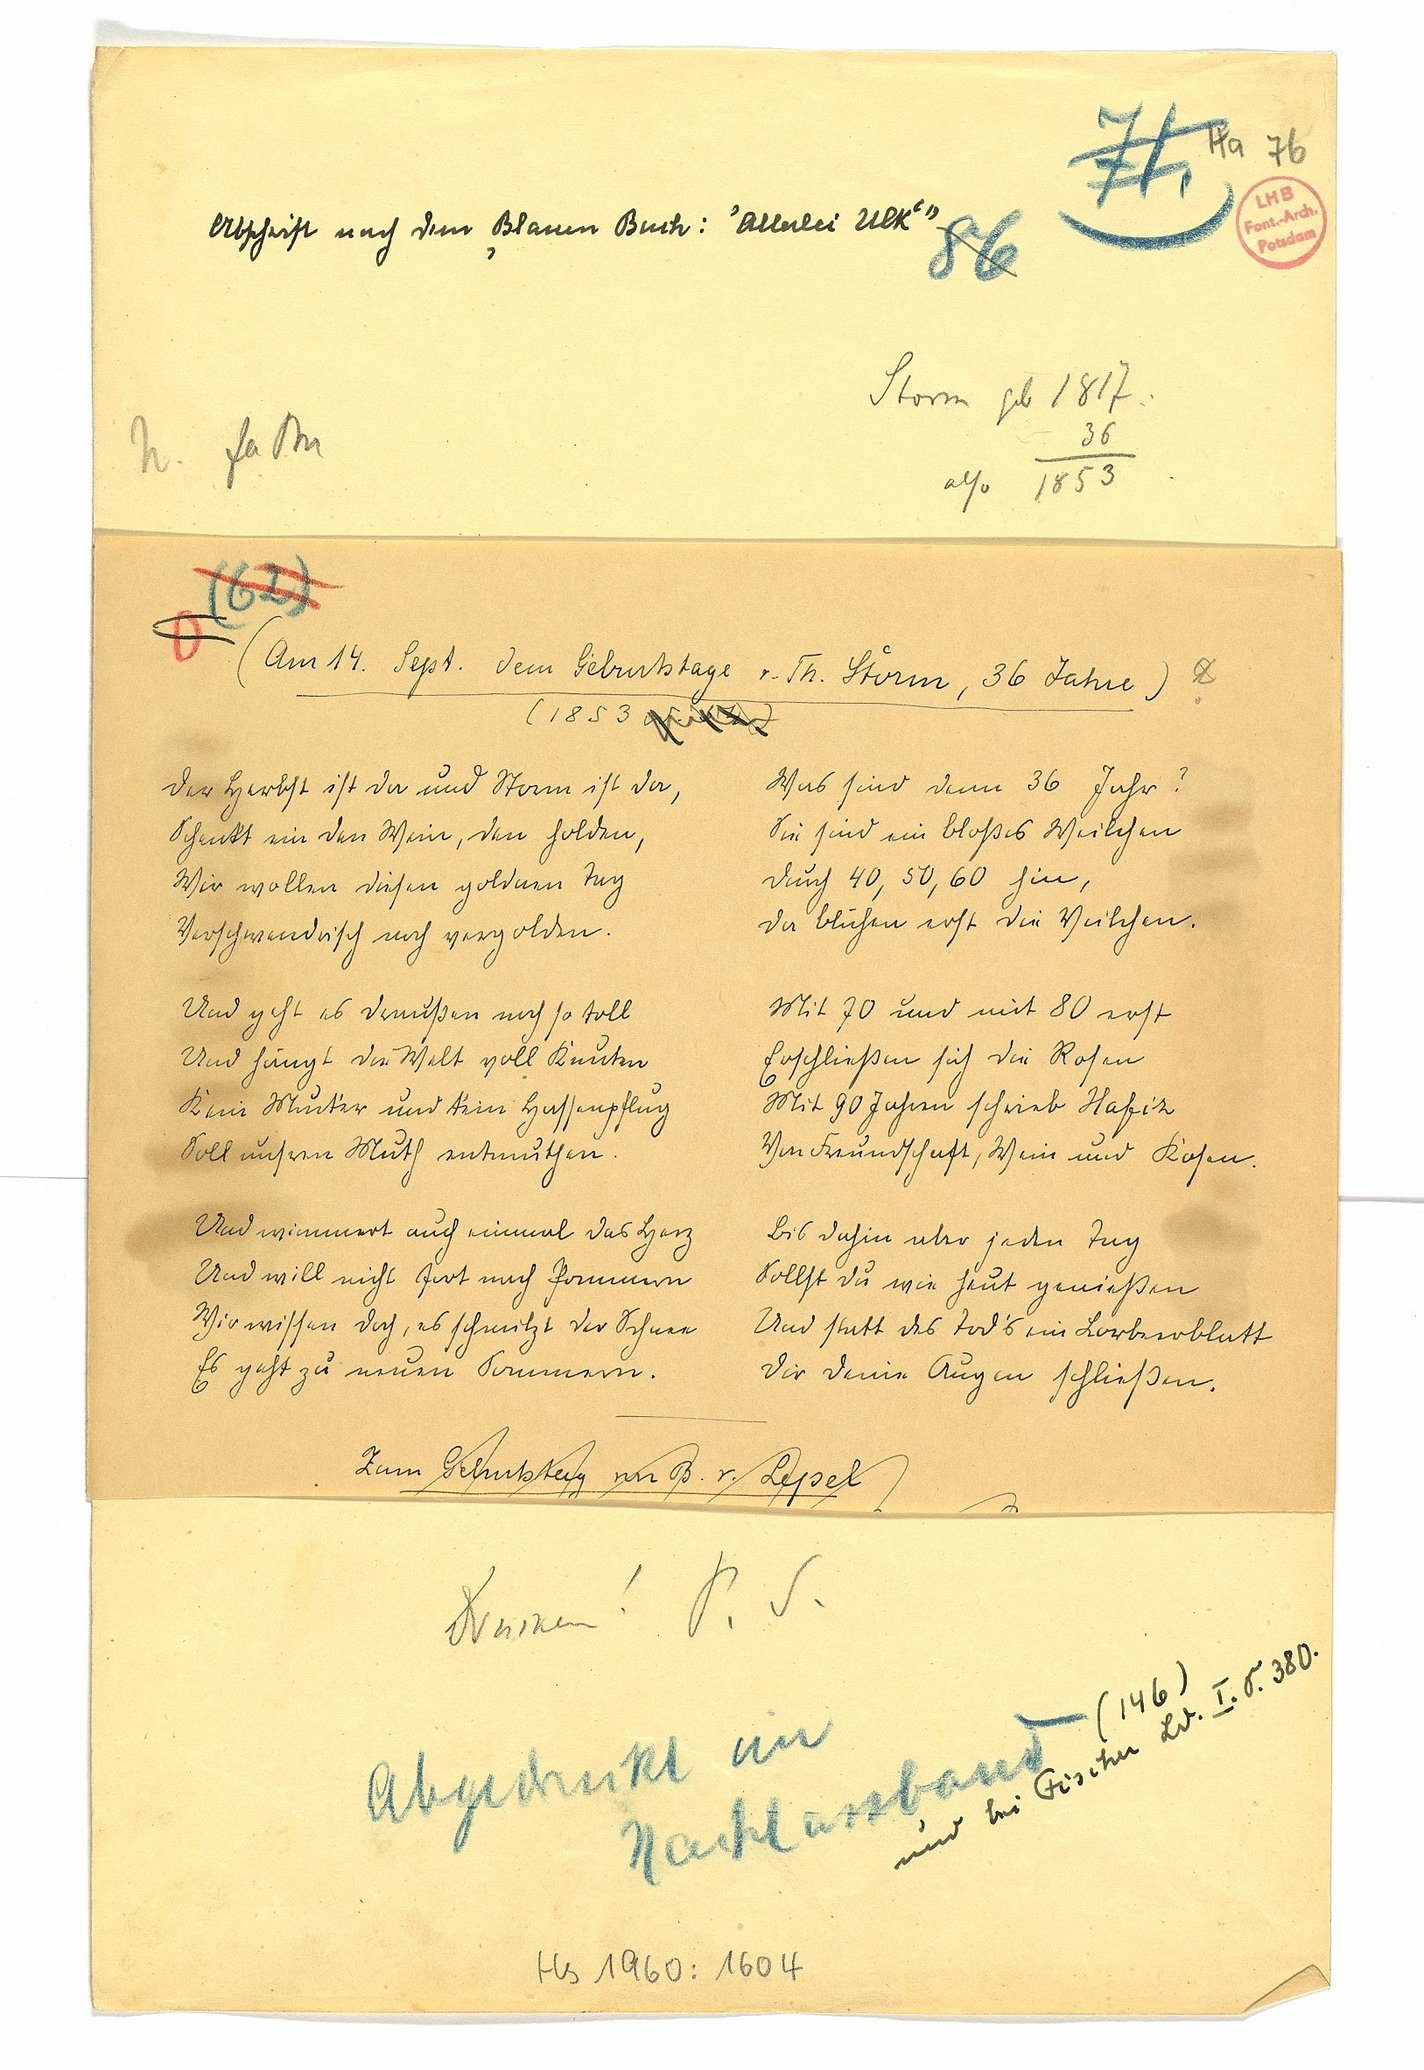 71.
Ha 76
LHB
Font.-Arch.
Potsdam
Abschrift nach dem Blauen Buch: "Allerlei Ulk"
86
Storm geb 1817.
36
also 1853
(62)
0
(Am 14. Sept. dem Geburtstage v. Th. Storm, 36 Jahre)
(1853
Der Herbst ist da und Storm ist da,
Schenkt ein den Wein, den holden,
Wir wollen diesen goldnen Tag
Verschwendrisch noch vergolden.
Und geht es draußen noch so toll
Und hängt die Welt voll Knuten
Kein Mucker und kein Hassenpflug
Soll unsren Muth entmuthen.
Und wimmert auch einmal das Herz
Und will nicht fort nach Pommern
Wir wissen doch, es schmilzt der Schnee
Es geht zu neuen Sommern.
Was sind denn 36 Jahr?
Sie sind ein bloßes Weilchen
Durch 40, 50, 60 hin,
Da blühen erst die Veilchen.
Mit 70 und mit 80 erst
Erschließen sich die Rosen
Mit 90 Jahren schrieb Hafiz
Von Freundschaft, Wein und Kosen.
Bis dahin aber jeden Tag
Sollst du wie heut genießen
Und statt des Tod's ein Lorbeerblatt
Dir deine Augen schließen.
Zum Geburtstag von B. v. Lepel
P. S.
Abgedruckt im
Nachlassband (146)
und bei Fischer Bd. I. S. 380.
Hs 1960: 1604